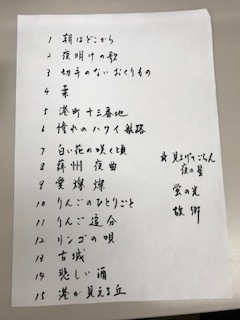 1 朝はどこから
2 夜明けの歌
3 切手のないおくりもの
4 柔
5 港町十三番地
6 憧れのハワイ航路
7 白い花の咲く頃
8 蘇州 夜曲
9 愛燦燦
10 りんごのひとりごと
11 りんご追分
12 リンゴの唄
13 古城
14 悲しい酒
15 港が見える丘
☆ 見上げてごらん
夜の星
蛍の光
故郷